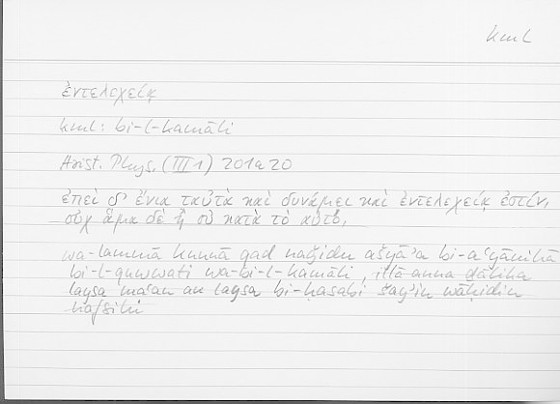 kml
ἐντελεχείᾳ
kml: bi-l-kamāli
Arist. Phys. (III 1) 201a20
ἐπεὶ δ' ἔνια ταὐτὰ καὶ δυνάμει καὶ ἐντελεχείᾳ ἐστίν,
οὐχ ἅμα δὲ ἢ οὐ κατὰ τὸ αὐτό,
wa-lammā kunnā qad naǧidu ašyāʾa bi-aʿyānihā
bi-l-quwwati wa-bi-l-kamāli, illā anna ḏālika
laysa maʿan au laysa bi-ḥasabi šayʾin wāḥidin